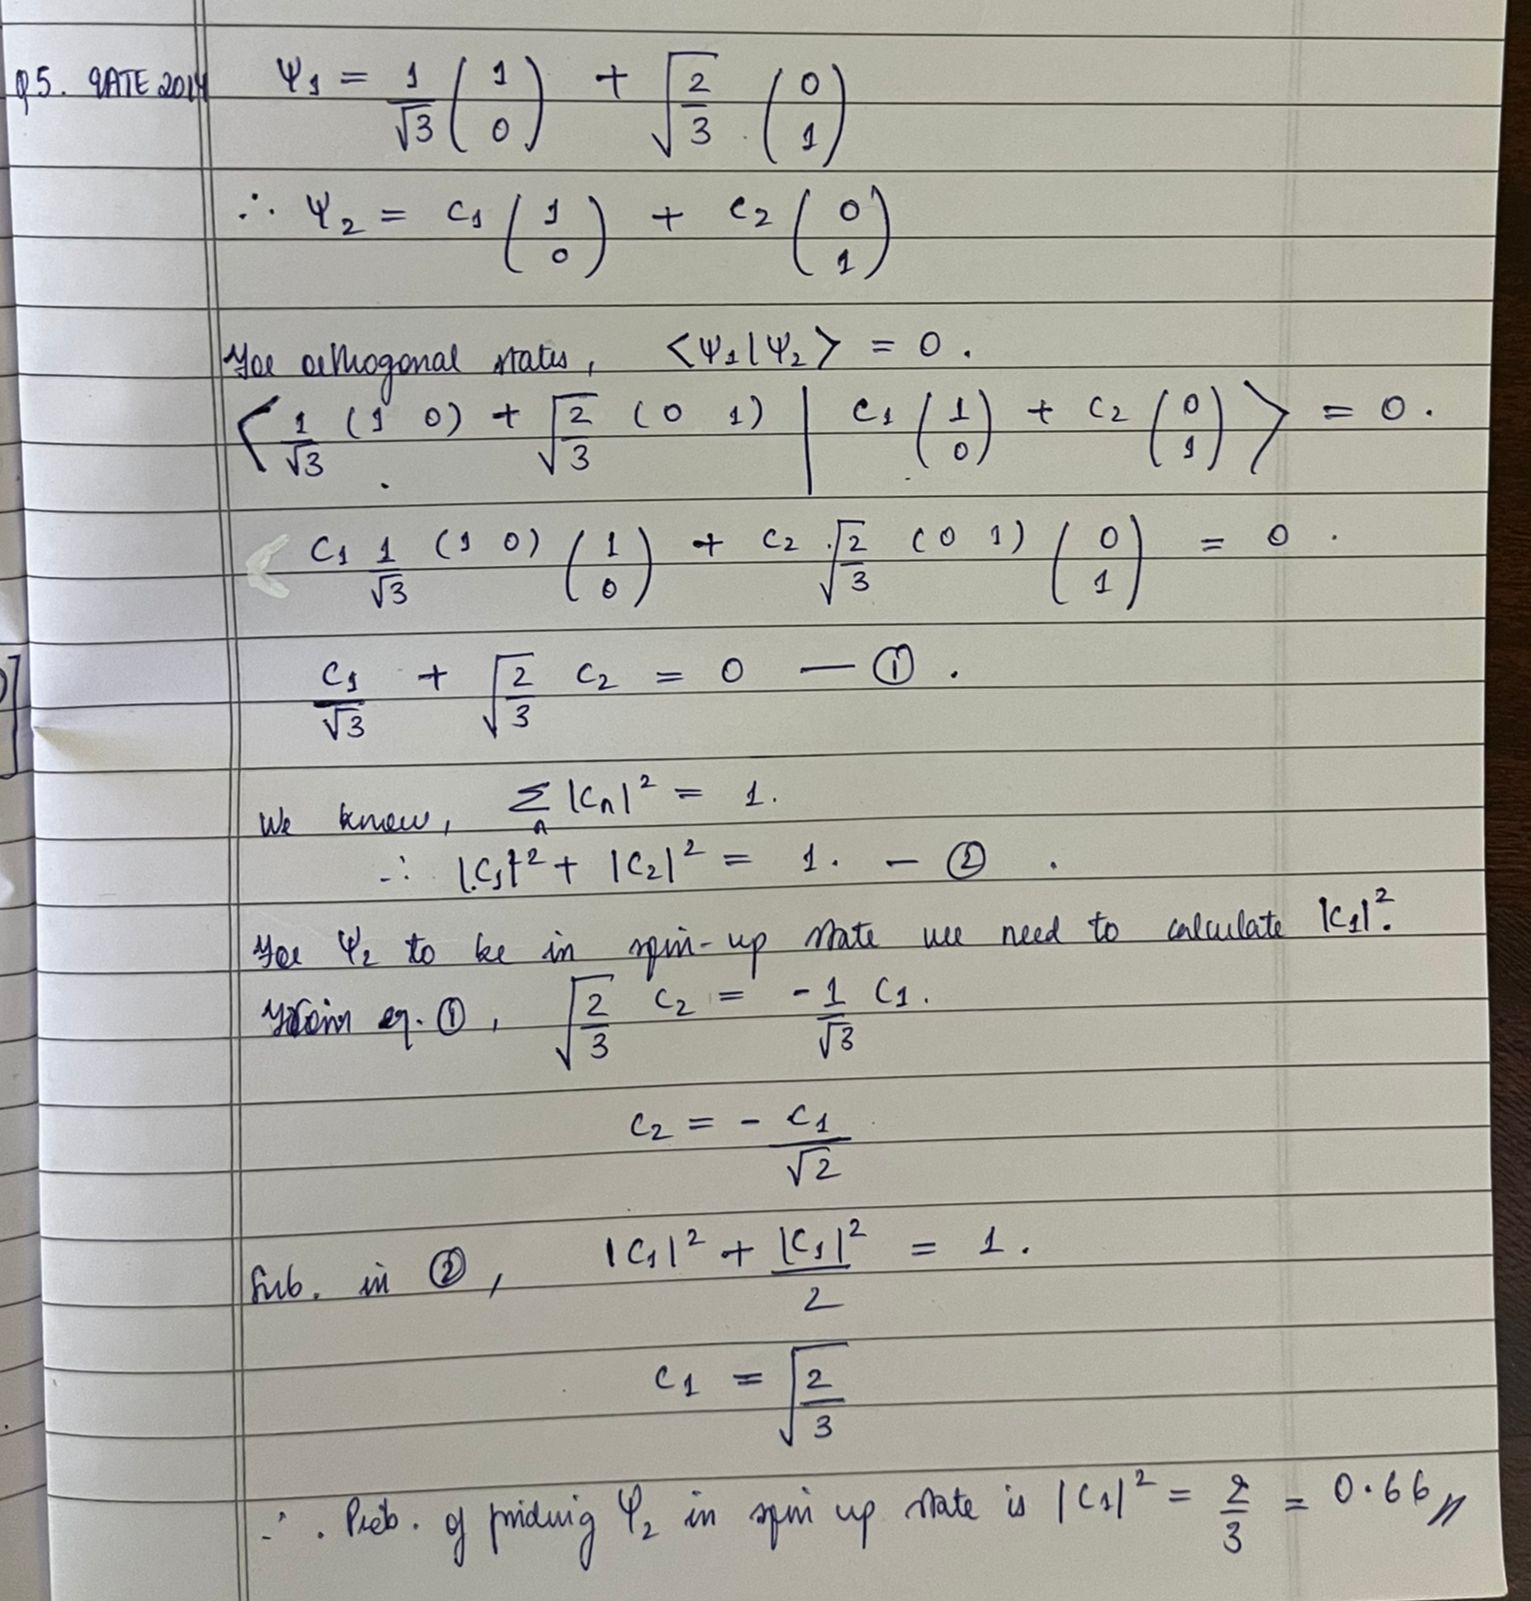 Q5. GATE 2014 Ψ1 = 1/√3 (1 0) + √2/3 (0 1)
∴ Ψ2 = C1 (1 0) + C2 (0 1)
For orthogonal states, <Ψ1|Ψ2> = 0.
< 1/√3 (1 0) + √2/3 (0 1) | C1 (1 0) + C2 (0 1) > = 0.
C1 1/√3 (1 0) (1 0) + C2 √2/3 (0 1) (0 1) = 0.
C1/√3 + √2/3 C2 = 0 — ①.
We know, Σn |Cn|² = 1.
∴ |C1|² + |C2|² = 1. — ②.
For Ψ2 to be in spin-up state we need to calculate |C1|².
From eq. ①, √2/3 C2 = -1/√3 C1.
C2 = - C1/√2
Sub. in ②, |C1|² + |C1|²/2 = 1.
C1 = √2/3
∴ Prob. of finding Ψ2 in spin up state is |C1|² = 2/3 = 0.66//